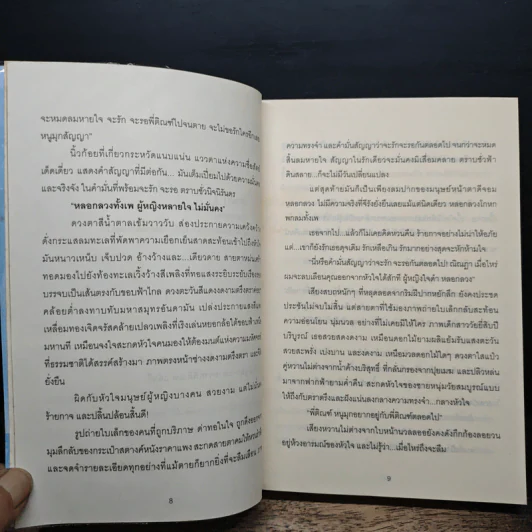 จะหมดลมหายใจ จะรัก จะรอพี่ติณฑ์ไปจนตาย จะไม่ขอรักใครอีก
หนูมุกสัญญา"
นิ้วก้อยที่เกี่ยวกระหวัดแนบแน่น แววตาแห่งความซื่อสัตย์
เด็ดเดี่ยว แสดงคำสัญญาที่มีต่อกัน... มันเต็มเปี่ยมไปด้วยความ
และจริงจัง ในคำมั่นที่พร้อมจะรัก จะรอ ตราบชั่วนิจนิรันดร
"หลอกลวงทั้งเพ ผู้หญิงหลายใจ ไม่มั่นคง"
ดวงตาสีน้ำตาลเข้มวาววับ ส่องประกายความเคร้งคร้าว
ดังกระแสลมทะเลที่พัดพาความเยือกเย็นสาดสะท้อนเข้าไปถึง
มันหนาวเหน็บ เจ็บปวด อ้างว้างและ...เดียวดาย สายตาหม่น
ทอดมองไปยังท้องทะเลเวิ้งว้างสีเพลิงที่ทอแสงระยิบระยับ
บรรจบเป็นเส้นตรงกับขอบฟ้าไกล ดวงตะวันสีแดงงดงามตรึงตรา
คล้อยต่ำลงทาบทับมหาสมุทรอันดามัน เปล่งประกายแสง
เหลื่อมทองเจิดจรัสคล้ายเปลวเพลิงที่เริงเล่นหยอกล้อได้อย่าง
มหานที เหมือนจงใจสะกดหัวใจคนมองให้ต้องมนต์แห่งความ
ที่ธรรมชาติได้รังสรรค์สร้างมา ภาพตรงหน้าช่างงดงามตรึงตรา และ
ยั่งยืน
ผิดกับหัวใจมนุษย์ผู้หญิงบางคน สวยงาม แต่ไม่
ร้ายกาจ และปลิ้นปล้อนสิ้นดี!
รูปถ่ายใบเล็กของคนที่ถูกบริภาษ ด่าทอในใจ ถูกดึง
มุมลึกลับของกระเป๋าสตางค์หนังราคาแพง สะกดสายตาคมให้
และจดจำรายละเอียดทุกอย่างที่แม้ตายก็ยากยิ่งที่จะลืมเลือน
8
ความทรงจำ และคำมั่นสัญญาว่าจะรักจะรอกันตลอดไป จนกว่าจะหมด
สิ้นลมหายใจ สัญญาในรักเดียวจะมั่นคงมิเสื่อมคลาย ตราบชั่วฟ้า
ดินสลาย...ก็จะไม่มีวันเปลี่ยนแปลง
แต่สุดท้ายมันก็เป็นเพียงลมปากของมนุษย์หน้าตาดีจอม
หลอกลวง ไม่มีความจริงที่จีรังยั่งยืนเลยแม้แต่นิดเดียว หลอกลวงโกหก
พกลมทั้งเพ
เธอจากไป...แล้วก็ไม่เคยคิดหวนคืน ร้ายกาจอย่างไม่น่าให้อภัย
แต่...เขาก็ยังรักเธอสุดเติม รักเหลือเกิน รักมากอย่างสุดจะหักห้ามใจ
"นี่หรือคำมั่นสัญญาว่าจะรักจะรอกันตลอดไป ณิณฎา เมื่อไหร่
ผมจะลบเลือนคุณออกจากหัวใจได้สักที ผู้หญิงใจดำ หลอกลวง"
เสียงสบถหนักๆ ที่หลุดลอดจากริมฝีปากหยักลึก ยังคงประชด
ประชันไม่จบไม่สิ้น แต่สายตาที่ใช้มองภาพถ่ายใบเล็กกลับสะท้อน
ความอ่อนโยน นุ่มนวล อย่างที่ไม่เคยมีให้ใคร ภาพเด็กสาววัยยี่สิบปี
บริบูรณ์ เธอสวยสดงดงาม เหมือนดอกไม้ยามผลิแย้มรับแสงตะวัน
สวยสะพรั่ง เบ่งบาน และงดงาม เหนือมวลดอกไม้ใดๆ ดวงตาใสแป๋ว
คู่หวานไม่ต่างจากน้ำค้างบริสุทธิ์ ที่กลั่นกรองจากปุยเมฆ และปลิวหล่น
มาจากฟากฟ้ายามค่ำคืน สะกดหัวใจของชายหนุ่มวัยสมบูรณ์แบบ
ให้ถึงกับตราตรึงและฝังแน่นลงกลางความทรงจำ...กลางหัวใจ
"พี่ติณฑ์ หนูมุกอยากอยู่กับพี่ติณฑ์ตลอดไป"
เสียงหวานไม่ต่างจากใบหน้านวลลออยังคงดังกึกก้องลอยวน
อยู่ห้วงอารมณ์ของหัวใจ และไม่รู้ว่า...เมื่อไหร่ถึงจะลืม
9